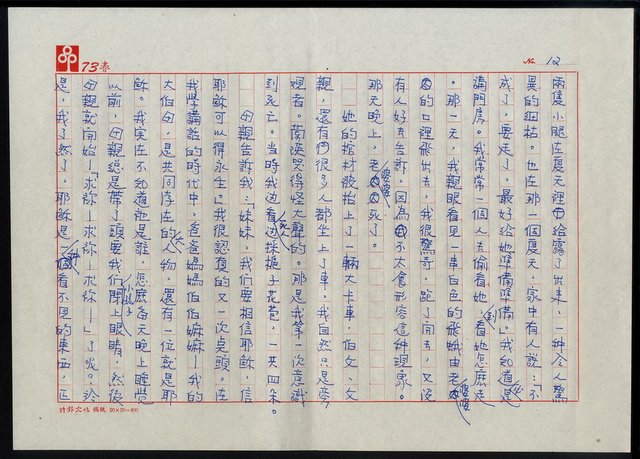 73春
No. 12
兩隻小腿在夏天裡給露了出來，一种令人驚
異的細枯。也在那一個夏天，家中有人說：「不
成了，要走了，最好給她準備準備。」我知道是
講阿房。我常常一個人去偷看她，看她怎麼走
。那一天，我親眼看見一串白色的飛蛾由老婆婆
的口裡飛出去，我很驚奇，跑了開去，又沒
有人好去告訴，因為我不太會形容這种現象。
那天晚上，老婆婆死了。
她的棺材被抬上了一輛大卡車，伯父、父
親，還有們很多人都坐上了車，我自然只是旁
觀者。蘭瑛哭得怪大聲的。那是我第一次意識
到死亡。當時我边看死人边採梔子花苞，一共四朵。
母親告訴我：「妹妹，我們要相信耶穌，信
耶穌可以得永生。」我很認真的又一次点頭。在
我學講話的時代中，爸爸媽媽伯伯嫲嫲—我的
大伯母，是共同存在的大人物，還有一位就是耶
穌。我实在不知道祂是誰，怎麼每天晚上睡覺
以前，母親總是帶了頭要我們小孩子閉上眼睛，然後
母親就開始—「求祢—求祢—求祢—」了呢。於
是，我了然了，耶穌是一個看不見的東西，叫
詩郵文化 稿紙 20×20=400